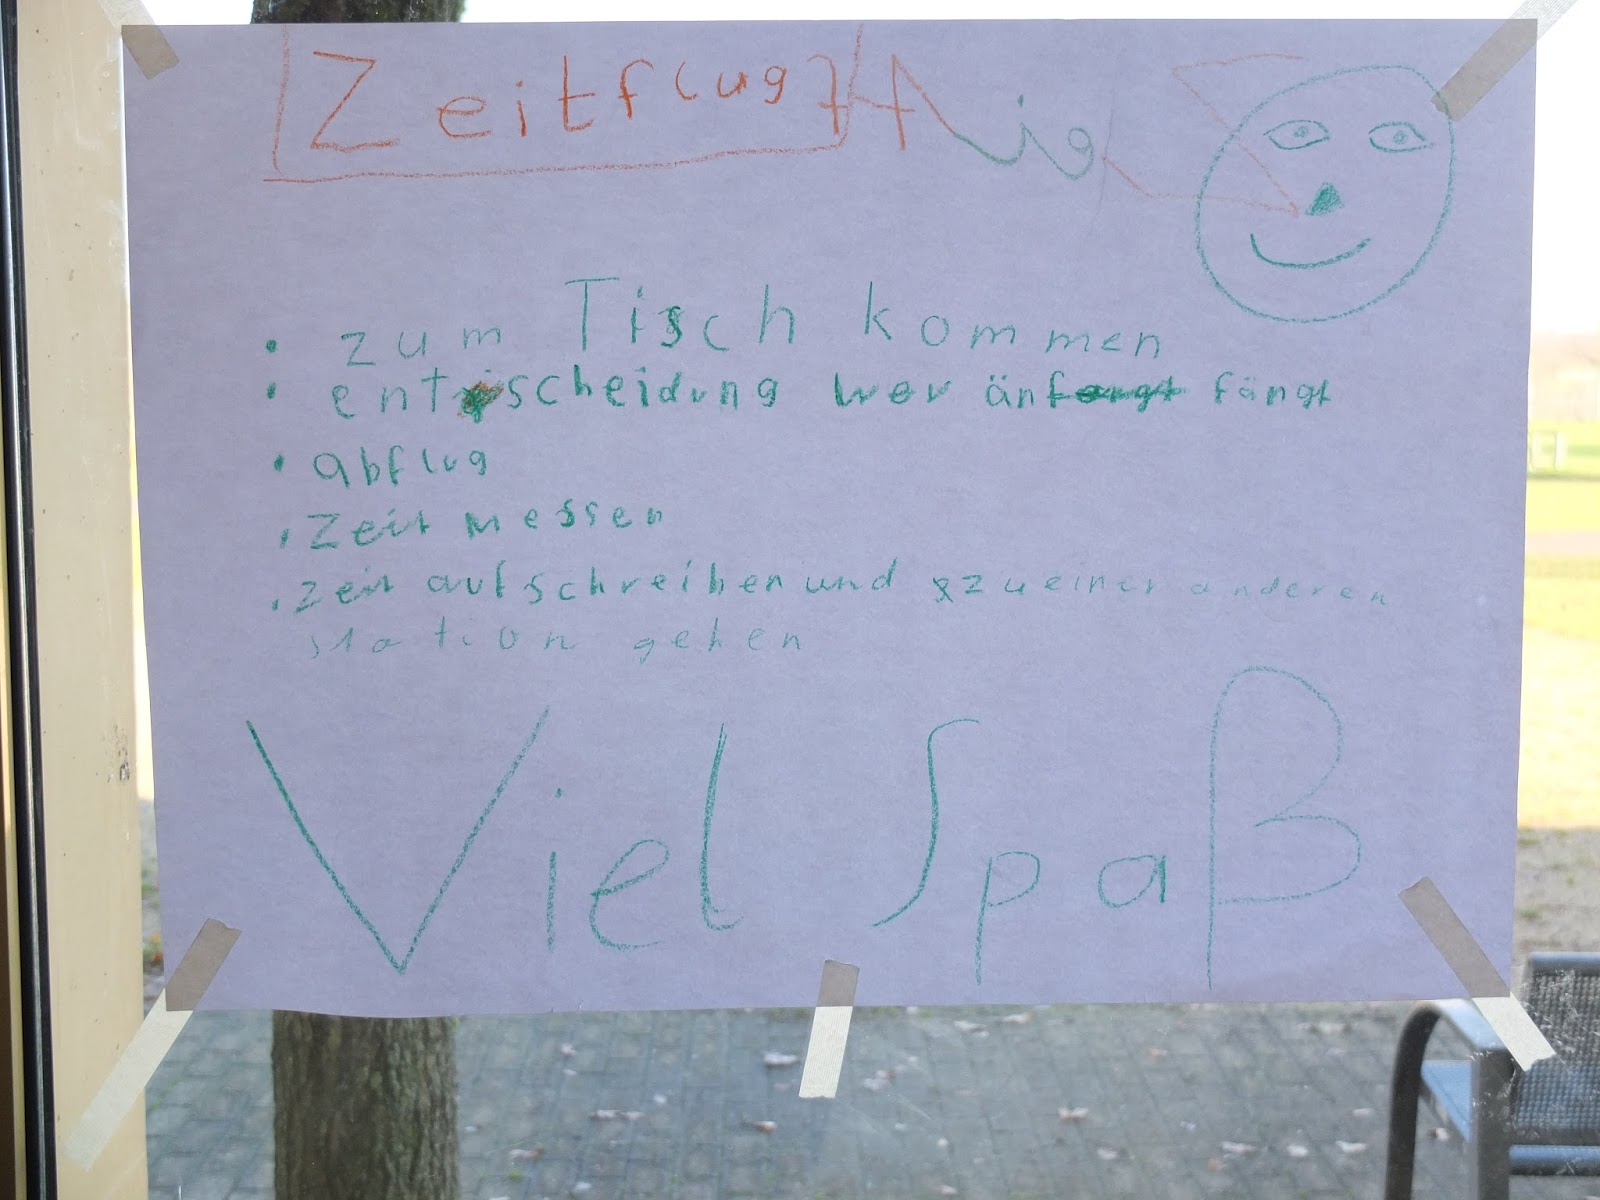 Zeitflug
• zum Tisch kommen
• entscheidung wer än fängt
• abflug
• Zeit messen
• Zeit aufschreiben und zu einer anderen
station gehen
Viel Spaß